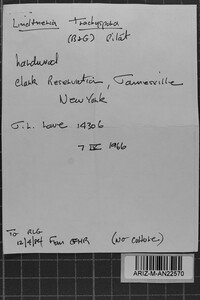 Lindtneria trachyspora
(B&G) Pilát
hardwood
Clark Reservation, Jamesville
New York
J.L. Lowe 14306
7 IX 1966
To RLG
12/4/84 From CFMR (No culture)
ARIZ-M-AN22570